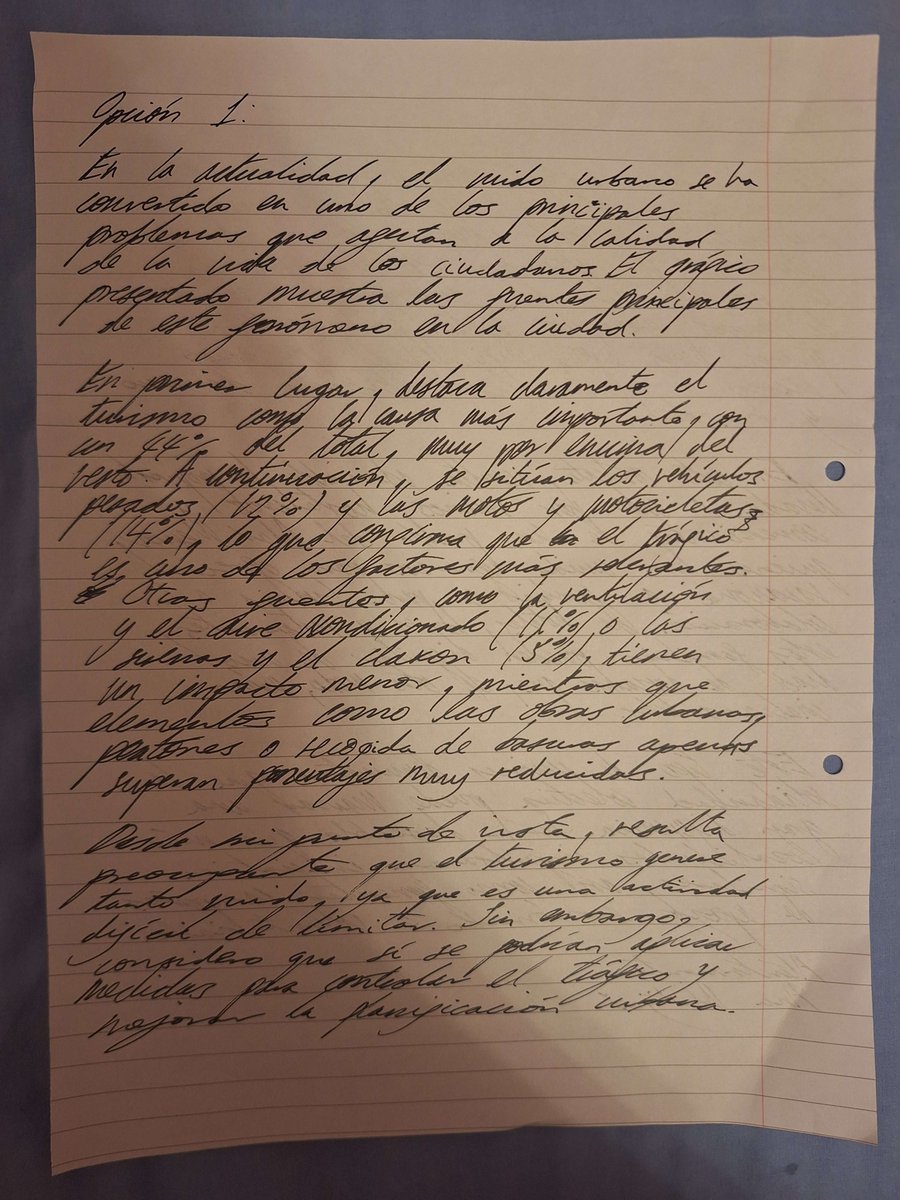 Opción 1:
En la actualidad, el ruido urbano se ha
convertido en uno de los principales
problemas que afectan a la calidad
de la vida de los ciudadanos. El gráfico
presentado muestra las fuentes principales
de este fenómeno en la ciudad.
En primer lugar, destaca claramente el
turismo como la causa más importante, con
un 44% del total, muy por encima del
resto. A continuación, se sitúan los vehículos
pesados (12%) y las motos y motocicletas
(14%), lo que confirma que el tráfico
es uno de los factores más relevantes.
Otras fuentes, como la ventilación
y el aire acondicionado (11%) o las
sirenas y el claxon (3%), tienen
un impacto menor, mientras que
elementos como las obras urbanas,
peatones o recogida de basuras apenas
superan porcentajes muy reducidos.
Desde mi punto de vista, resulta
preocupante que el turismo genere
tanto ruido, ya que es una actividad
difícil de limitar. Sin embargo,
considero que sí se podrían aplicar
medidas para controlar el tráfico y
mejorar la planificación urbana.